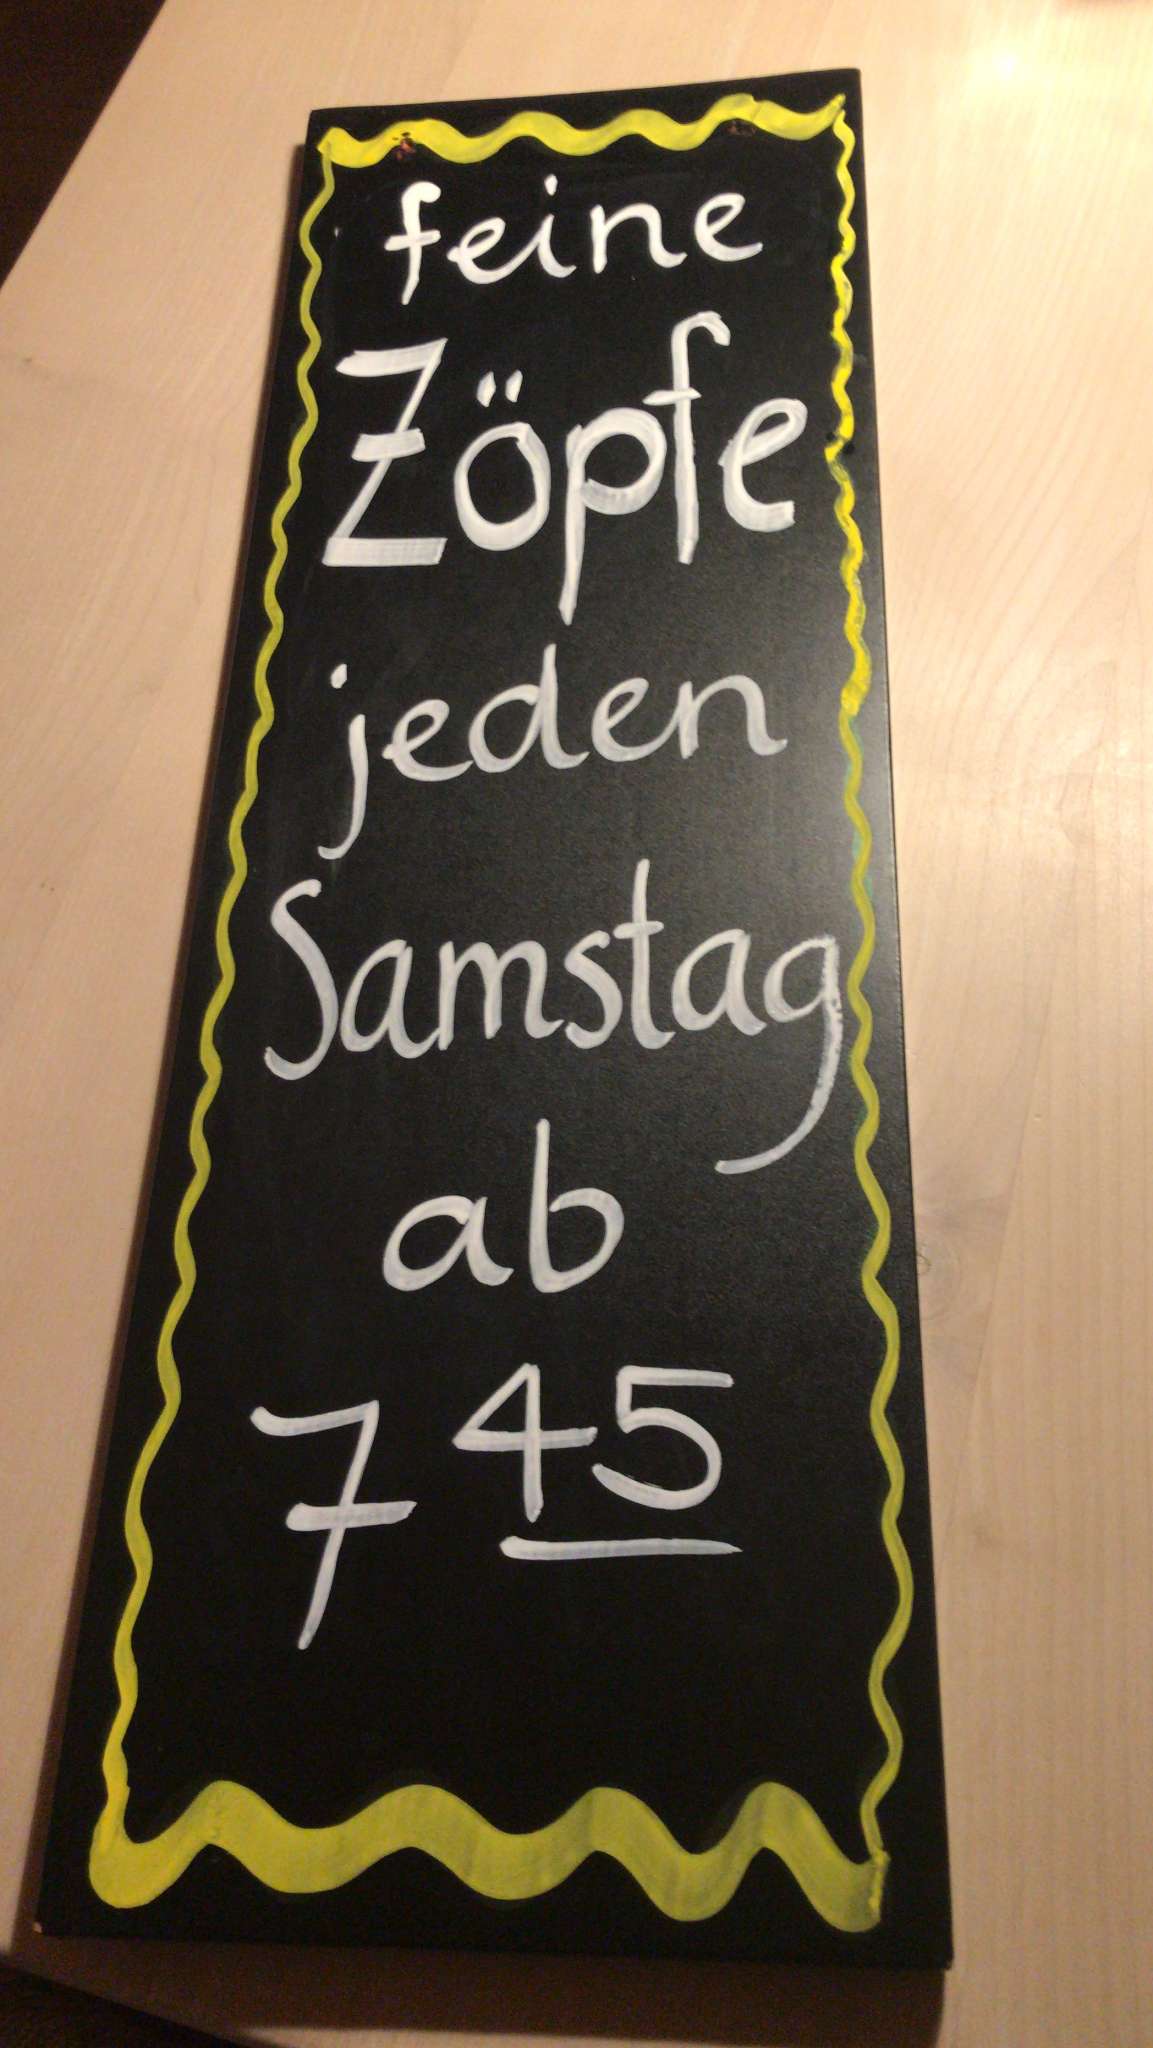 feine
Zöpfe
jeden
Samstag
ab
7 45